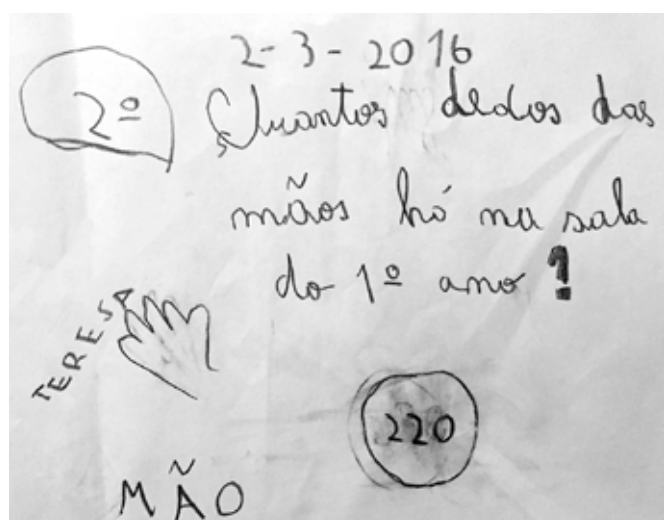 2-3-2016
2º Quantos dedos das
mãos há na sala
do 1º ano ?
TERESA
220
MÃO